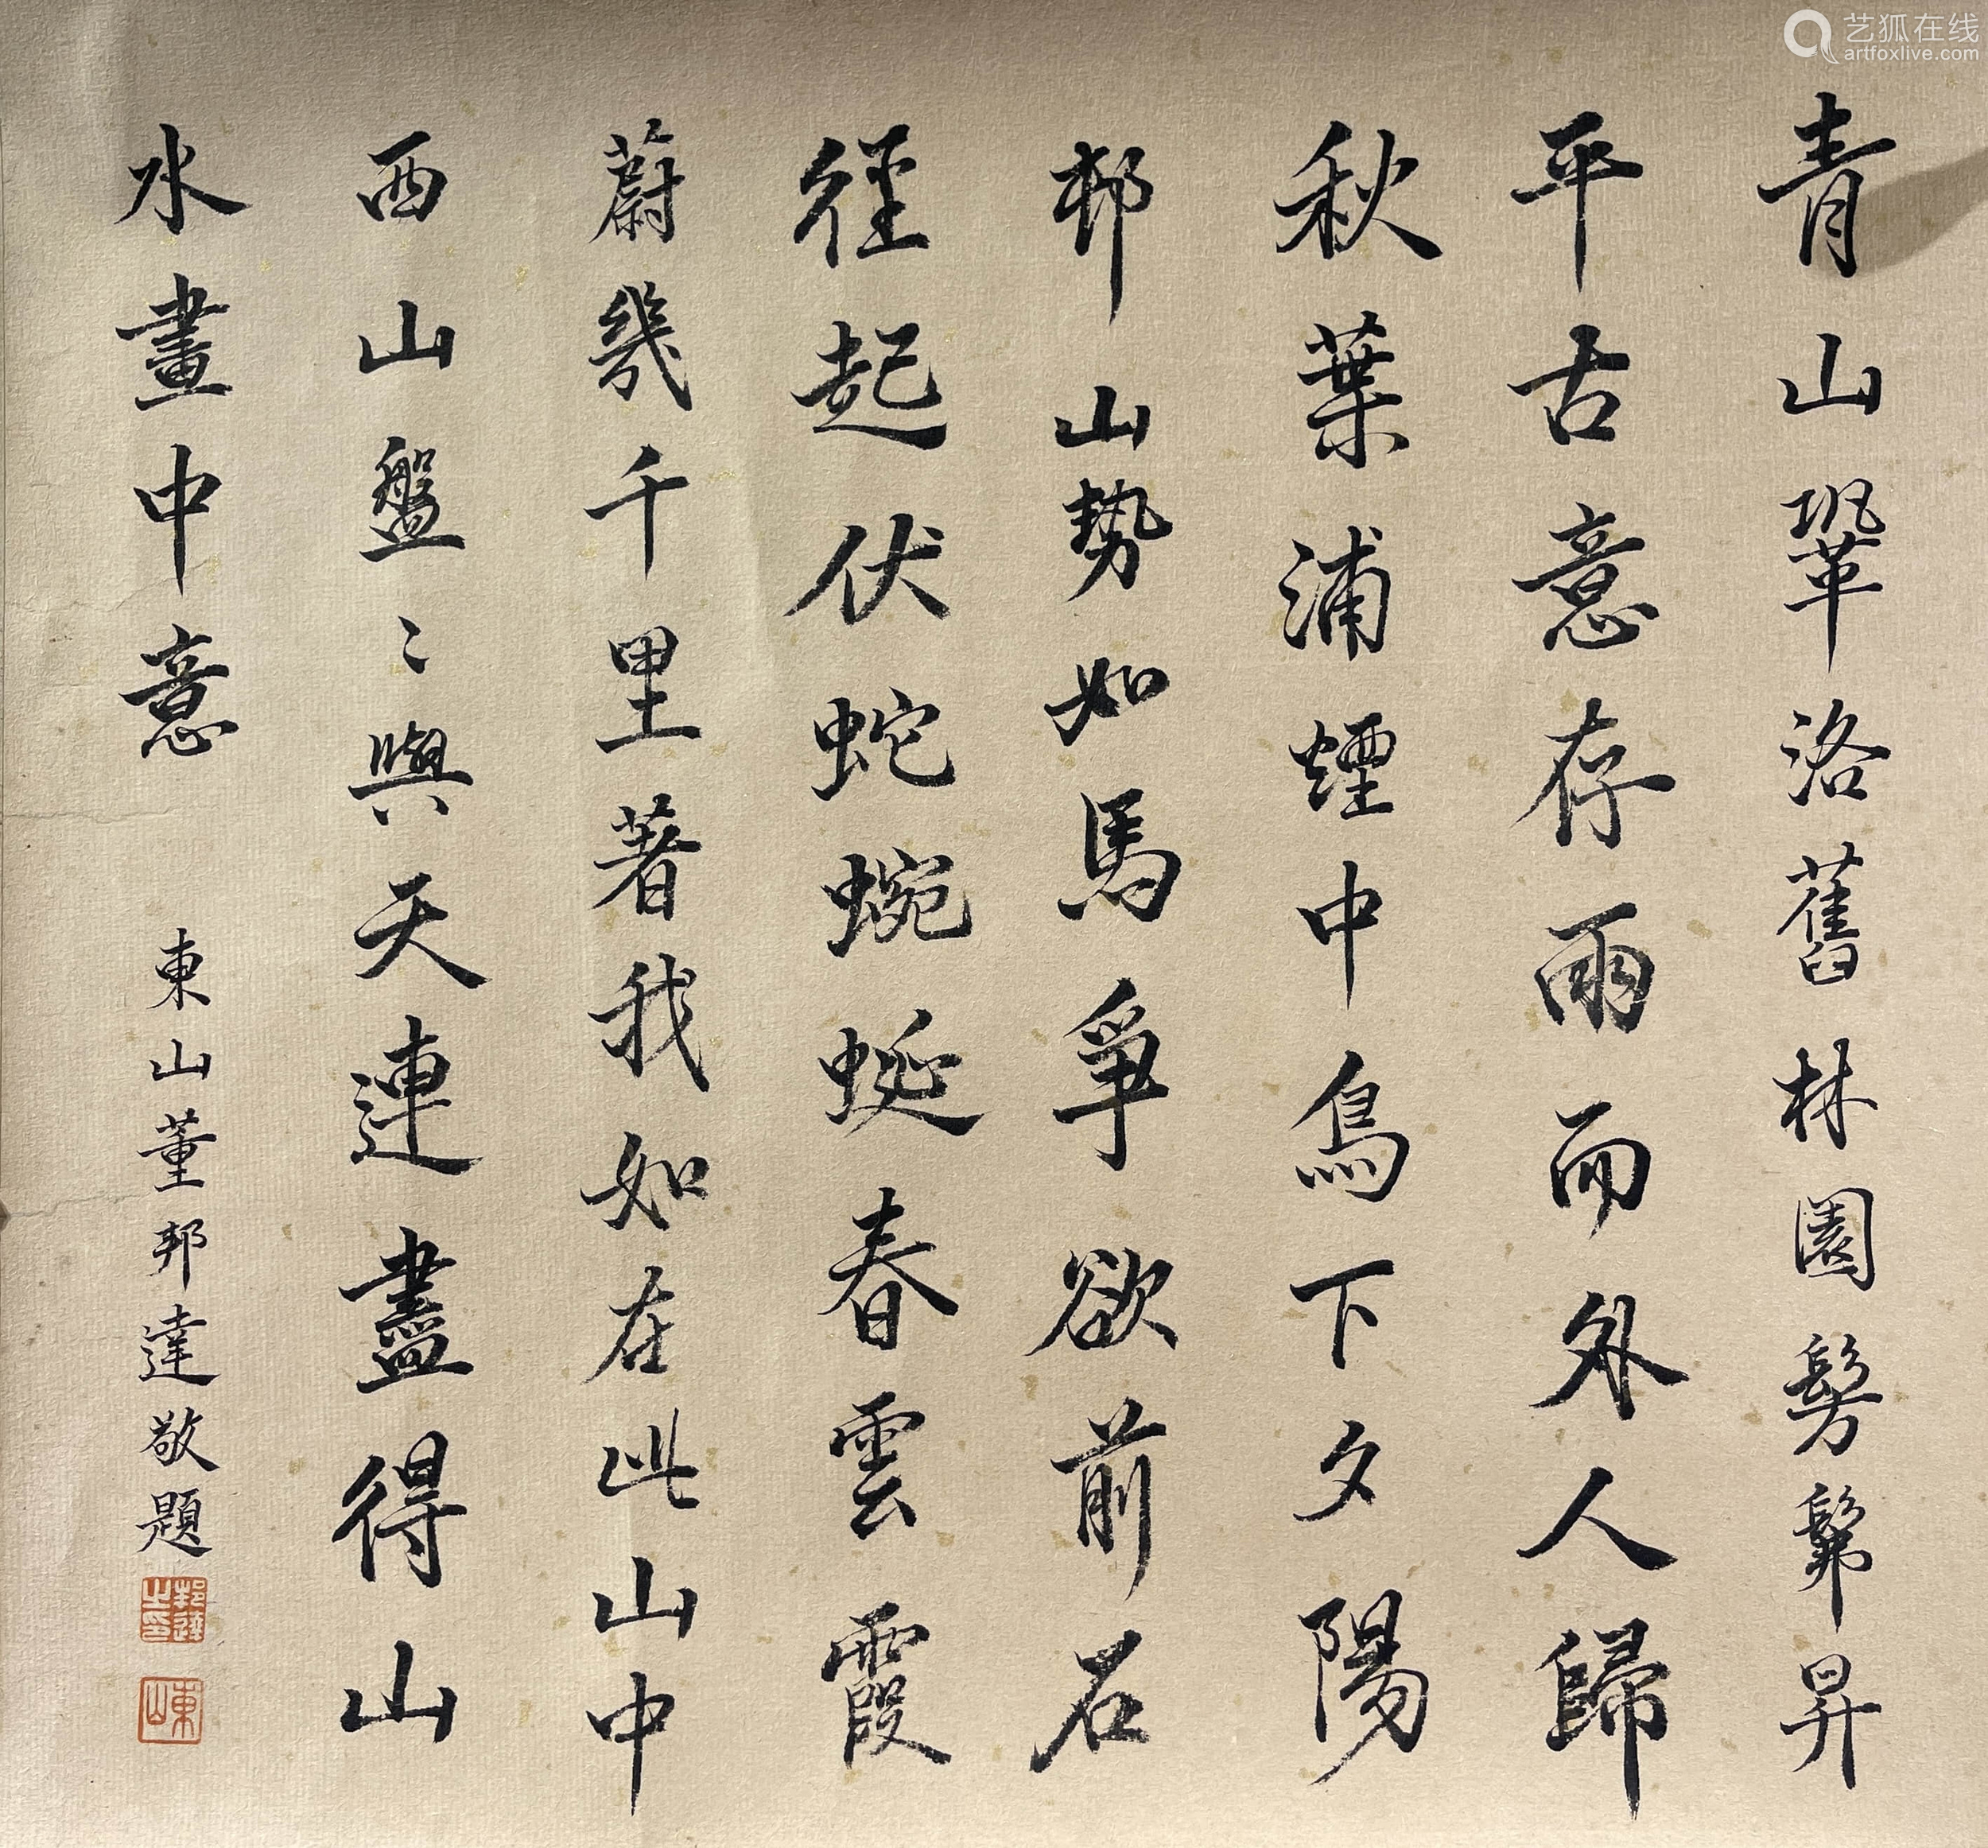 青山鞏洛舊林園髣髴昇
平古意存雨而外人歸
秋葉浦煙中鳥下夕陽
邨山勢如馬爭欲前石
徑起伏蛇蜿蜒春雲霞
蔚幾千里著我如在此山中
西山盤〻與天連盡得山
水畫中意
東山董邦達敬題
邦達之印
東山
艺狐在线
artfoxlive.com